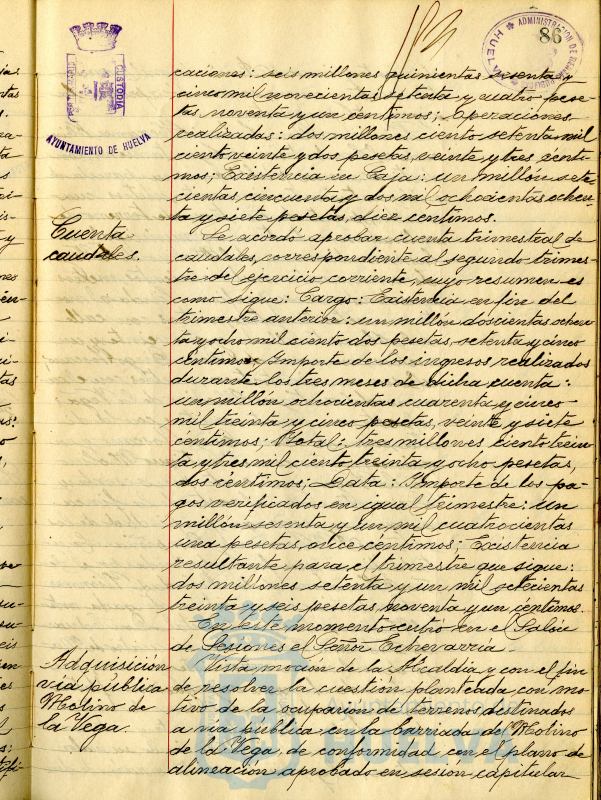 86
CUSTODIA
AYUNTAMIENTO DE HUELVA
ADMINISTRACION DE
HUELVA
caciones: seis millones quinientas sesenta y
cinco mil novecientas setenta y cuatro pese-
tas, noventa y un centimos; Operaciones
realizadas: dos millones ciento setenta mil
ciento veinte y dos pesetas, veinte y tres centi-
mos; Existencia en Caja: un millón sete-
cientas cincuenta y dos mil ochocientas ochen-
ta y siete pesetas, diez centimos.
Cuenta
caudales.
Se acordó aprobar cuenta trimestral de
caudales, correspondiente al segundo trimes-
tre del ejercicio corriente, cuyo resumen es
como sigue: Cargo: Existencia en fin del
trimestre anterior: un millón doscientas ochen-
ta y ocho mil ciento dos pesetas, setenta y cinco
centimos; Importe de los ingresos realizados
durante los tres meses de dicha cuenta:
un millon ochocientas cuarenta y cinco
mil treinta y cinco pesetas, veinte y siete
centimos; Total: tres millones ciento trein-
ta y tres mil ciento treinta y ocho pesetas,
dos céntimos; Data: Importe de los pa-
gos verificados en igual trimestre: un
millón sesenta y un mil cuatrocientas
una pesetas, once céntimos; Existencia
resultante para el trimestre que sigue:
dos millones setenta y un mil setecientas
treinta y seis pesetas noventa y un centimos.
En este momento entró en el Salón
de Sesiones el Señor Echevarría.
Adquisición
via pública
Molino de
la Vega.
Vista moción de la Alcaldía y con el fin
de resolver la cuestión planteada con mo-
tivo de la ocupación de terrenos destinados
a via pública en la barriada del Molino
de la Vega, de conformidad con el plano de
alineación aprobado en sesión capitular